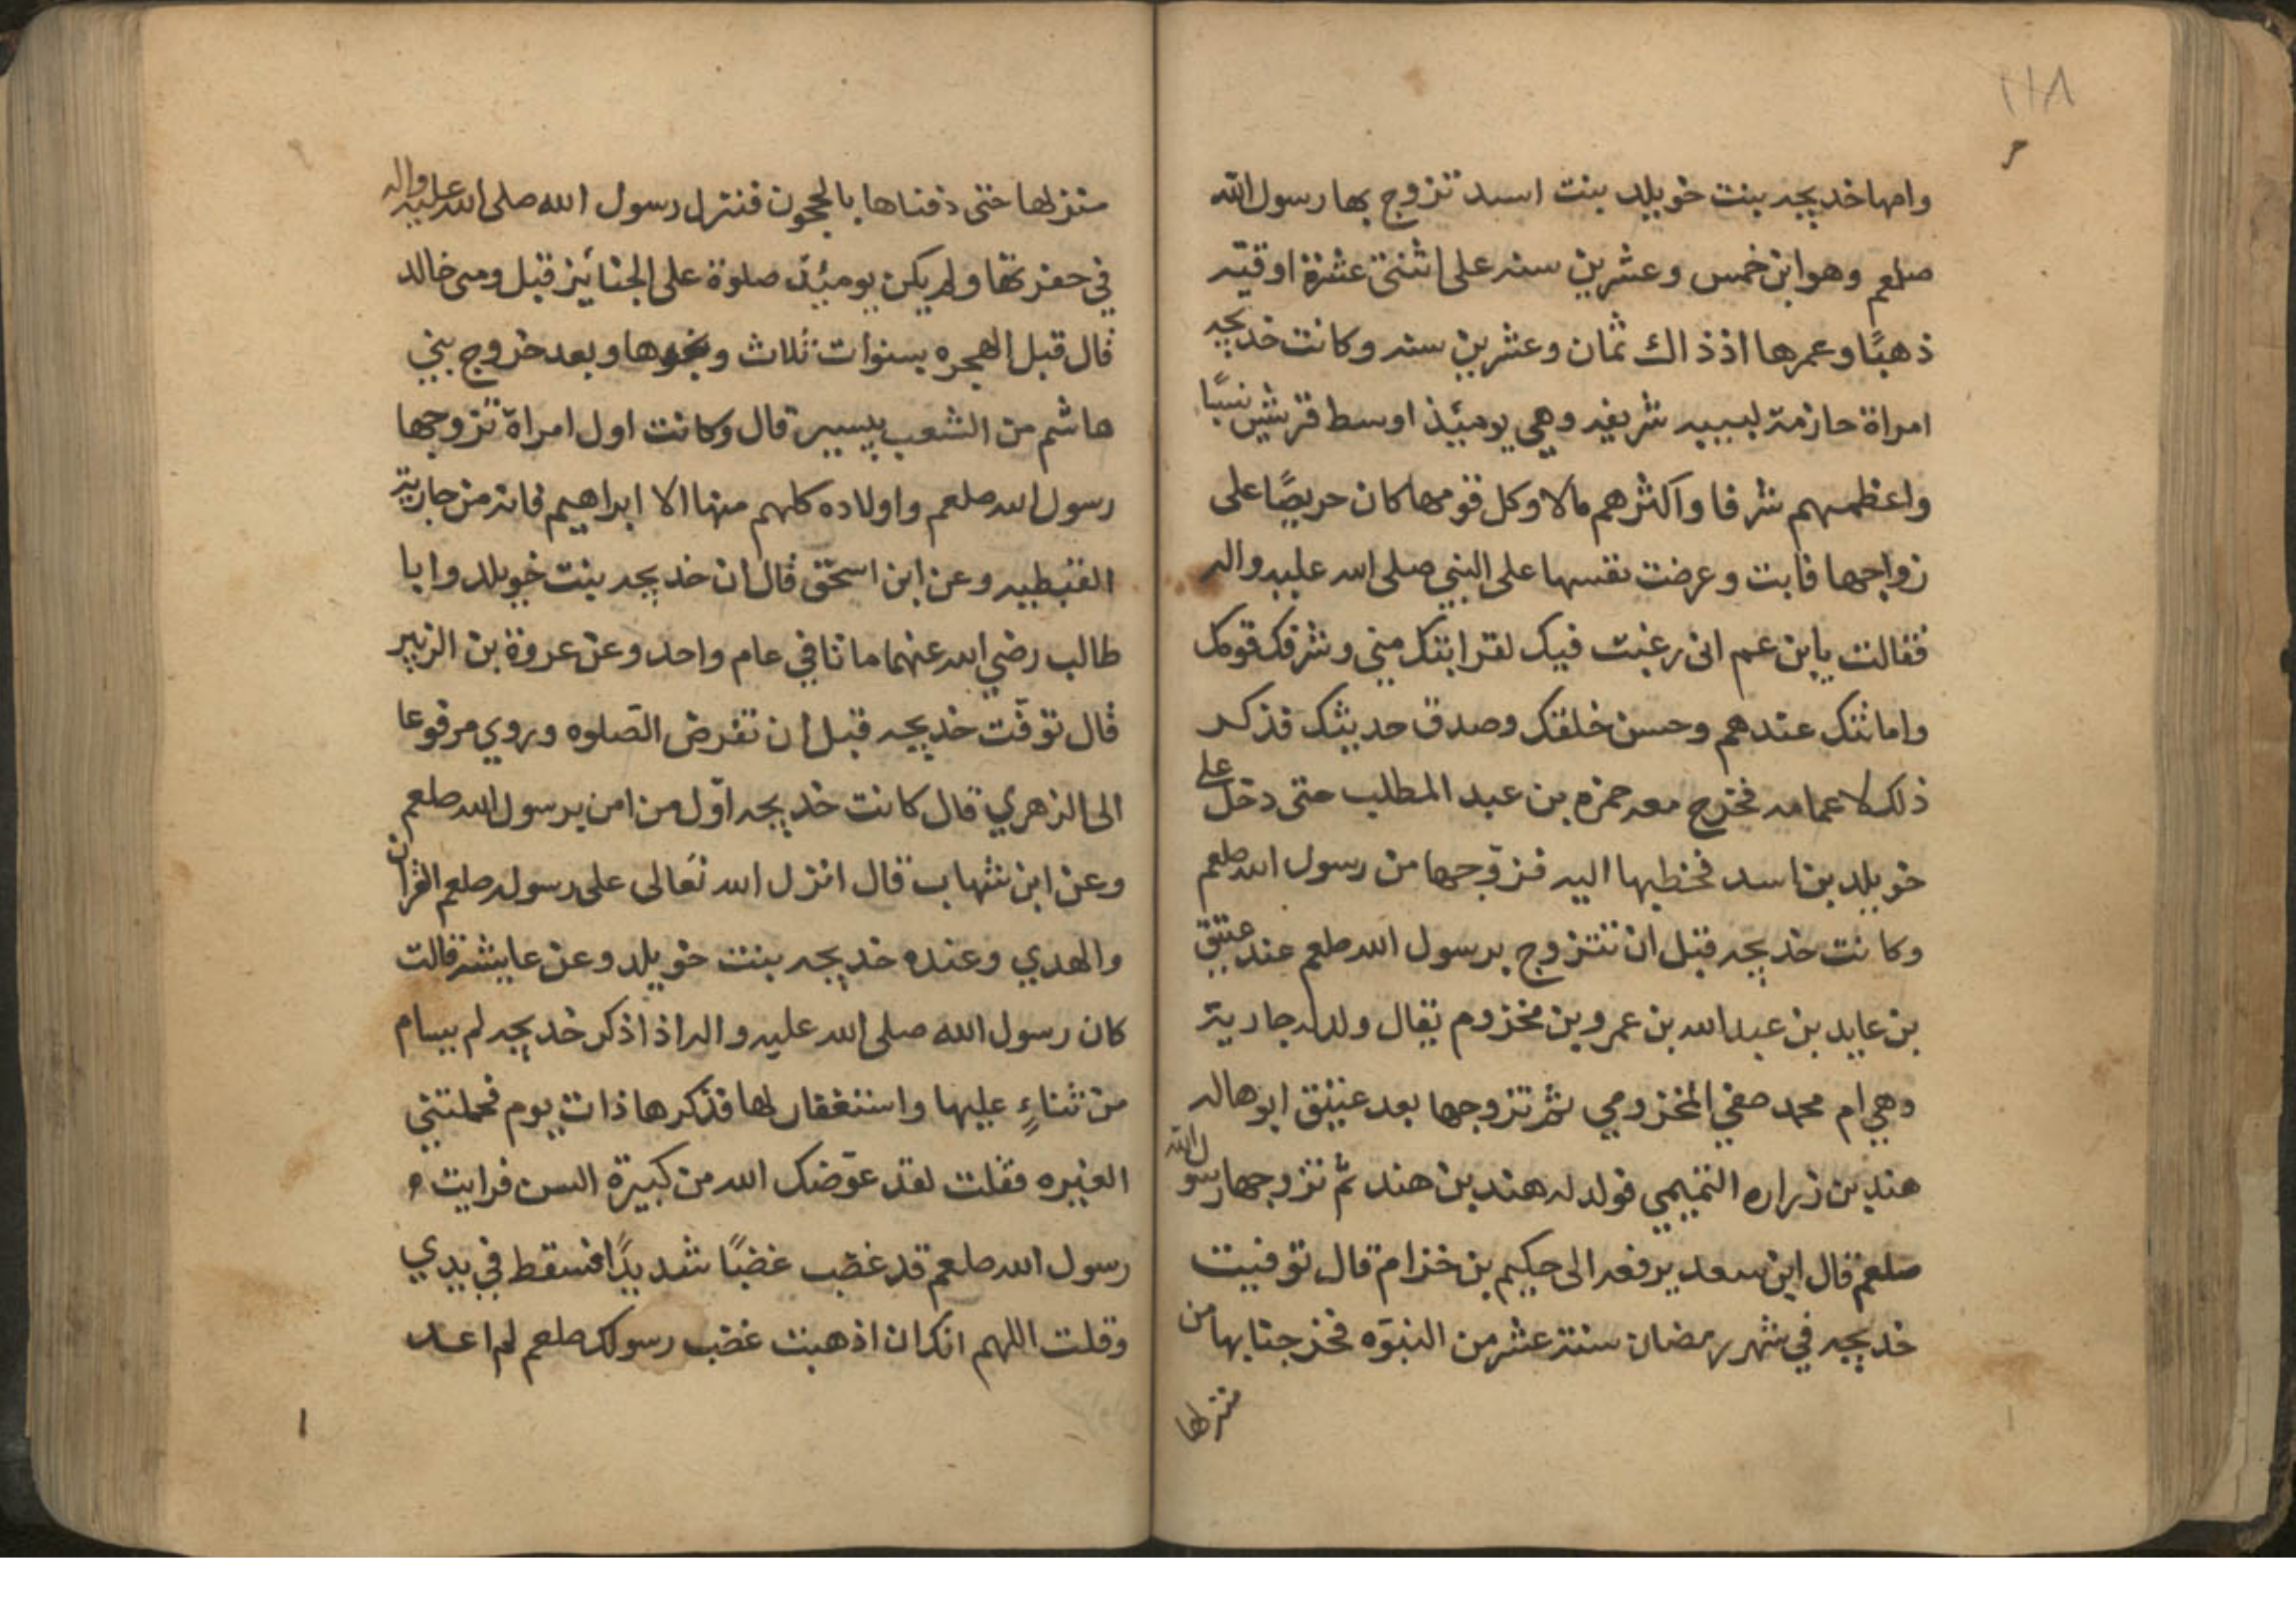 ١١٨
وامها خديجه بنت خويلد بنت اسد تزوج بها رسول الله
صلعم وهو ابن خمس وعشرين سنه على اثنتي عشرة اوقيّه
ذهبًا وعمرها اذ ذاك ثمان وعشرين سنه وكانت خديجه
امراة حازمة لبيبه شريفه وهي يومئيذ اوسط قريش نسبًا
واعظمهم شرفا واكثرهم مالا وكل قومها كان حريصًا على
زواجها فابت وعرضت نفسها على النبي صلى الله عليه واله
فقالت يابن عم انى رغبت فيك لقرابتك مني وشرفك قومك
وامانتك عندهم وحسن خلقك وصدق حديثك فذكر
ذلك لاعمامه فخرج معه حمزه بن عبد المطلب حتى دخل على
خويلد بن اسد فخطبها اليه فزوّجها من رسول الله صلعم
وكانت خديجه قبل ان تتزوج برسول الله صلعم عند عتيق
بن عايد بن عبد الله بن عمرو بن مخزوم يقال ولد له جارية
وهي ام محمد صفي المخزومي ثم تزوجها بعد عتيق ابو هاله
هند بن زراره التميمي فولد له هند بن هند ثم تزوجها رسول الله
صلعم قال ابن سعد يرفعه الى حكيم بن خزام قال توفيت
خديجه في شهر رمضان سنة عشر من النبوّه فخرجنا بها من
منزلها
منزلها حتى دفناها بالحجون فنزل رسول الله صلى الله عليه واله
في حفرتها ولم يكن يوميئذ صلوة على الجنائيز قيل ومى خالد
قال قبل الهجره بسنوات ثلاث ونحوها وبعد خروج بني
هاشم من الشعب بيسير قال وكانت اول امراة تزوجها
رسول الله صلعم واولاده كلهم منها الا ابراهيم فانه من جارية
القبطيه وعن ابن اسحق قال ان خديجه بنت خويلد وابا
طالب رضي الله عنهما ماتا في عام واحد وعن عروة بن الزبير
قال توفّت خديجه قبل ان تفرض الصّلوه وروي مرفوعا
الى الزهري قال كانت خديجه اوّل من امن برسول الله صلعم
وعن ابن شهاب قال انزل الله تعالى على رسوله صلعم القران
والهدي وعنده خديجه بنت خويلد وعن عايشه قالت
كان رسول الله صلى الله عليه واله اذا ذكر خديجه لم يسام
من ثناءٍ عليها واستغفار لها فذكرها ذات يوم فحملتني
الغيره فقلت لقد عوّضك الله من كبيرة السن فرايت
رسول الله صلعم قد غضب غضبًا شديدًا فسقط في يدي
وقلت اللهم انك ان اذهبت غضب رسولك صلعم لم اعد